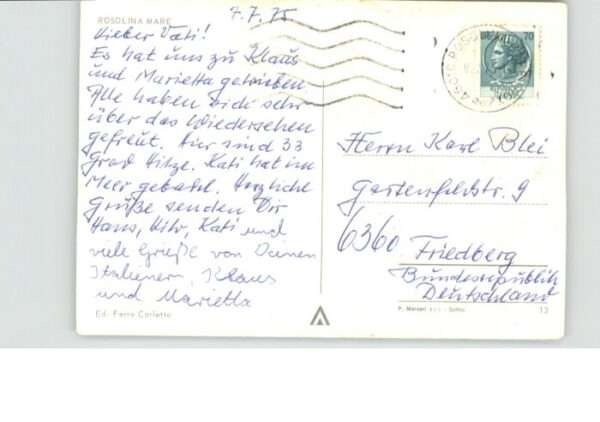 ROSOLINA MARE
7.7.75
Lieber Vati!
Es hat uns zu Klaus
und Marietta getrieben
Alle haben sich sehr
über das Wiedersehen
gefreut. Hier sind 33
Grad Hitze. Kati hat im
Meer gebadet. Herzliche
Grüße senden Dir
Hans, Kati und
viele Grüße von Deinen
Italienern, Klaus
und Marietta
Ed. Pierre Carletto
70
Herrn Karl Blei
Gartenfeldstr. 9
6360 Friedberg
Bundesrepublik
Deutschland
13